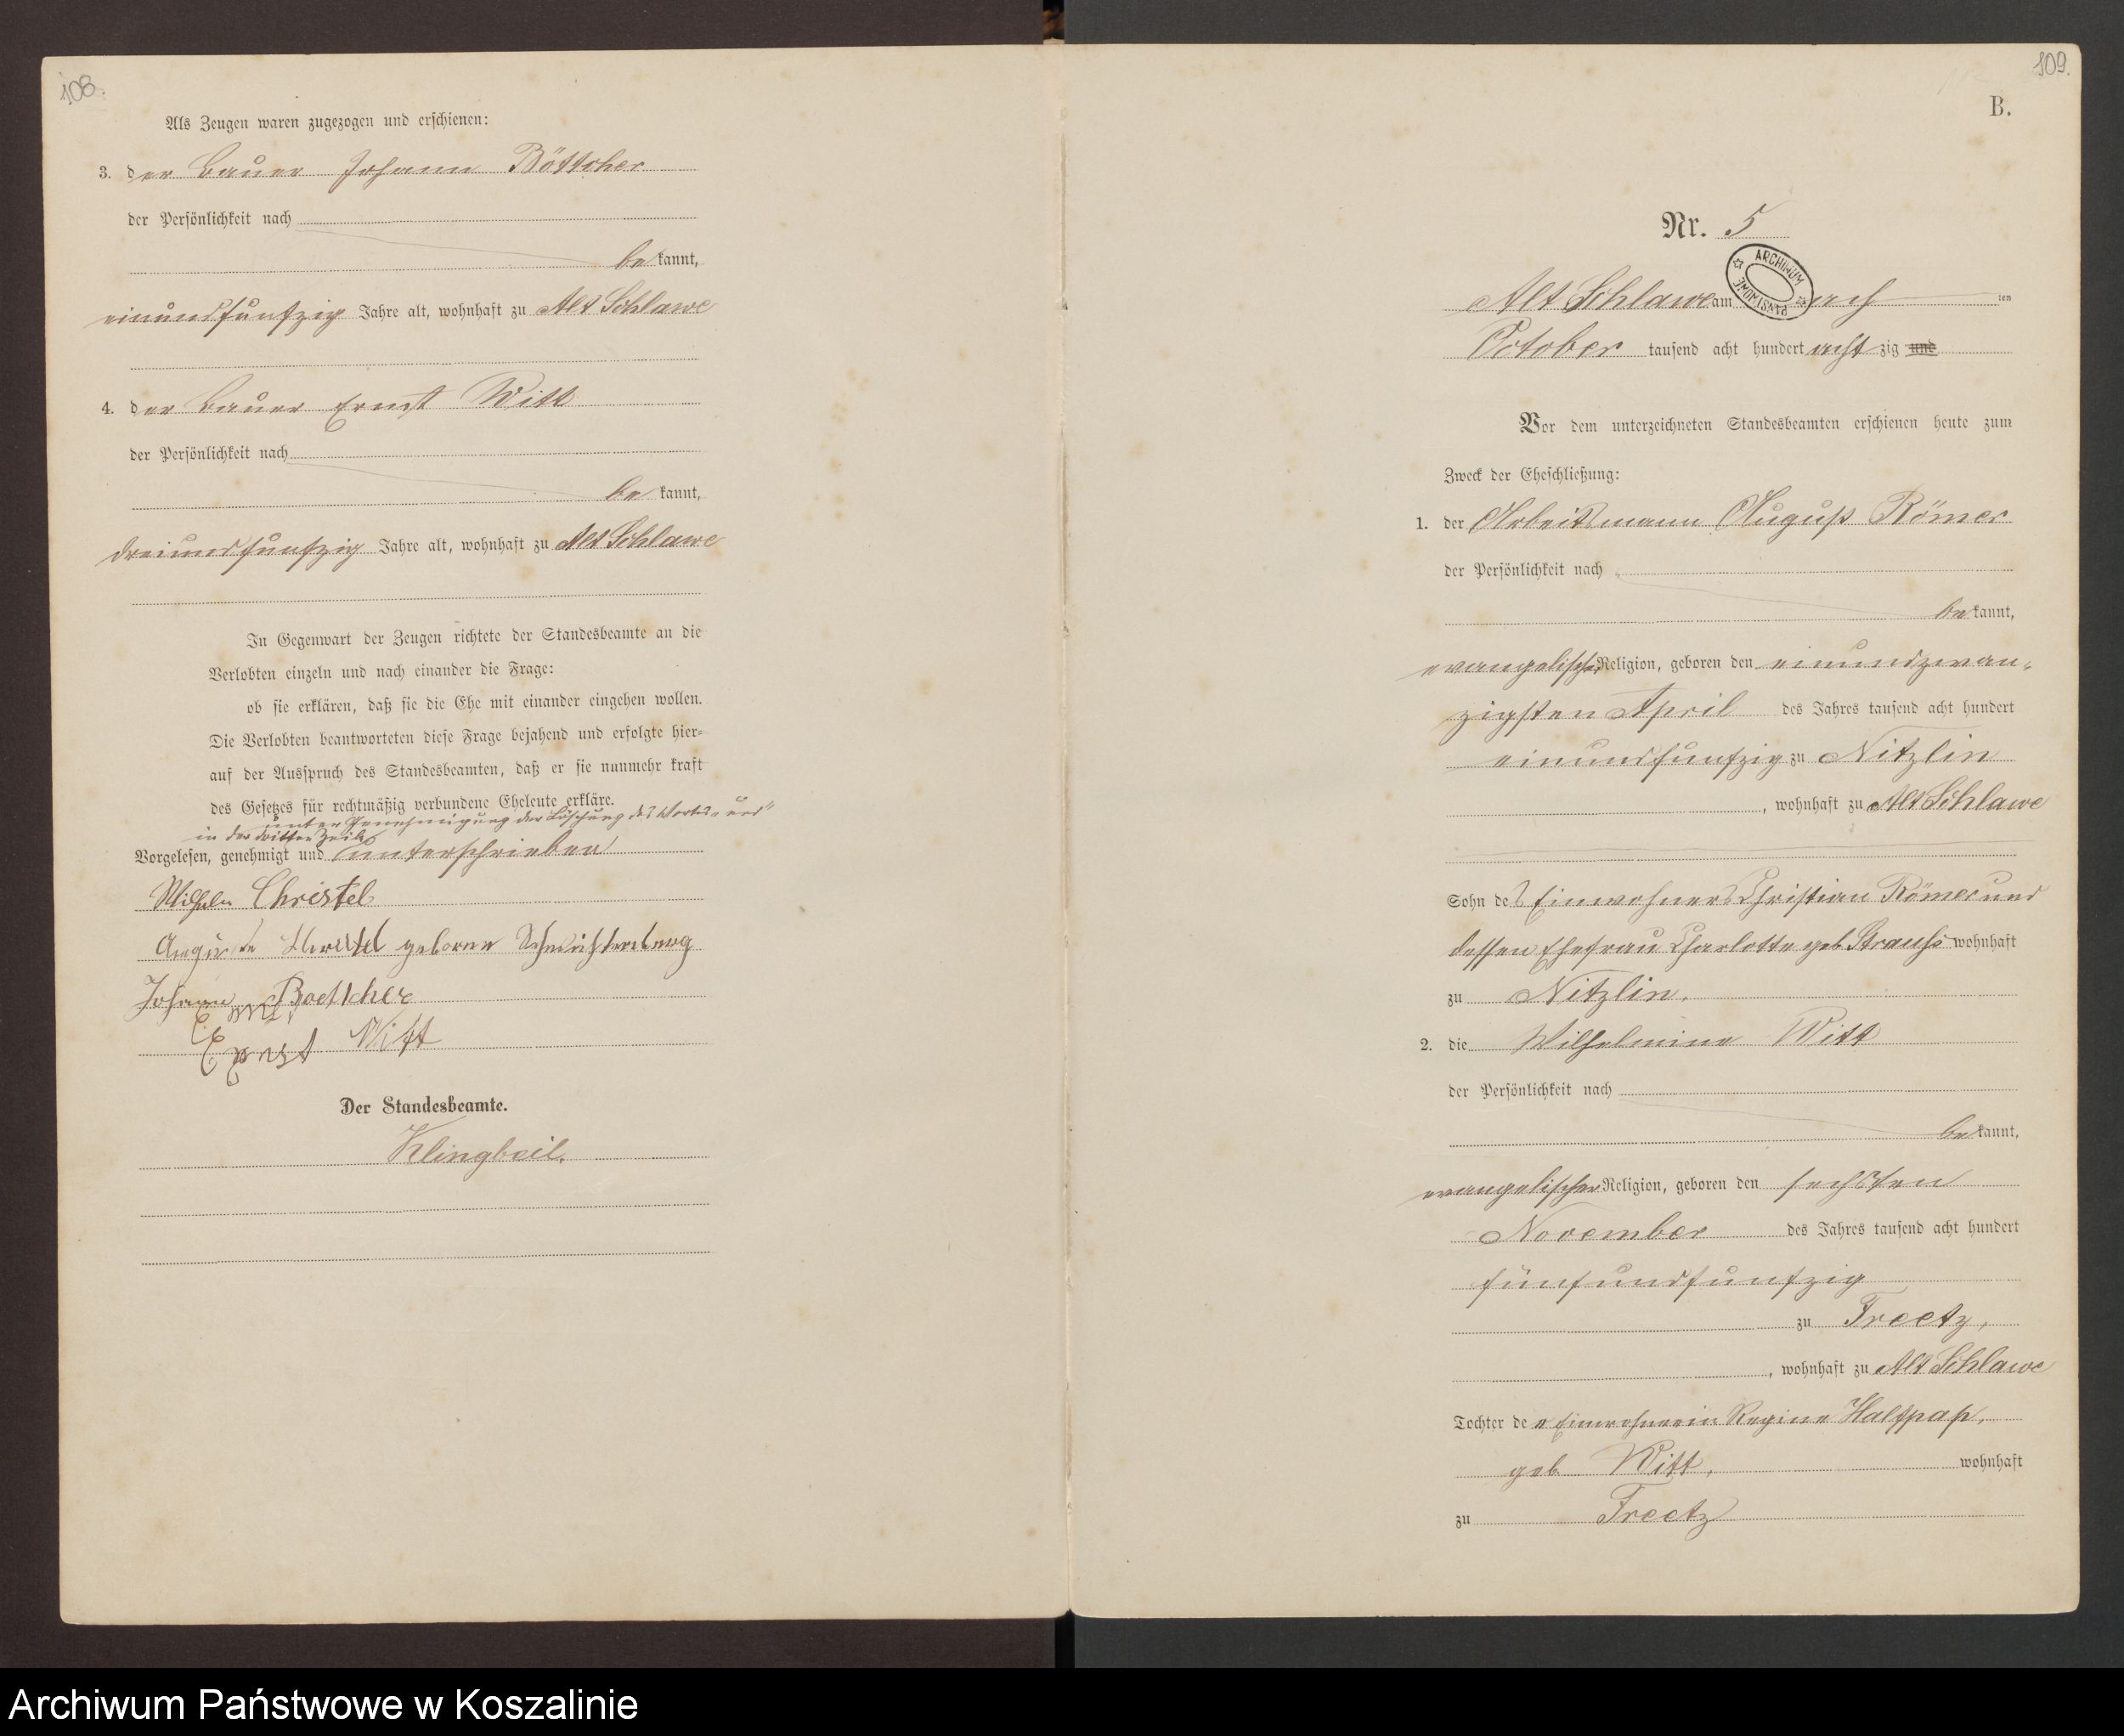 108.
Als Zeugen waren zugezogen und erschienen:
3. der Bauer Johann Böttcher
der Persönlichkeit nach
bekannt,
einundfunfzig Jahre alt, wohnhaft zu Alt Schlawe
4. der Bauer Ernst Witt
der Persönlichkeit nach
bekannt,
dreiundfunfzig Jahre alt, wohnhaft zu Alt Schlawe
In Gegenwart der Zeugen richtete der Standesbeamte an die
Verlobten einzeln und nach einander die Frage:
ob sie erklären, daß sie die Ehe mit einander eingehen wollen.
Die Verlobten beantworteten diese Frage bejahend und erfolgte hier=
auf der Ausspruch des Standesbeamten, daß er sie nunmehr kraft
des Gesetzes für rechtmäßig verbundene Eheleute erkläre.
unter Genehmigung der Löschung des Wortes "und"
in der dritten Zeile
Vorgelesen, genehmigt und unterschrieben
Wilhelm Christel
Auguste geborene
Johann Boettcher
Ernst Witt
Der Standesbeamte.
Klingbeil.
109.
B.
Nr. 5
Alt Schlawe am ten
ARCHIWUM PAŃSTWOWE
October tausend acht hundert achtzig und
Vor dem unterzeichneten Standesbeamten erschienen heute zum
Zweck der Eheschließung:
1. der Arbeitsmann August Römer
der Persönlichkeit nach
bekannt,
evangelischer Religion, geboren den einundzwan=
zigsten April des Jahres tausend acht hundert
einundfunfzig zu Nitzlin
, wohnhaft zu Alt Schlawe
Sohn des Einwohners Christian Römer und
dessen Ehefrau Charlotte geb. Strauhs wohnhaft
zu Nitzlin.
2. die Wilhelmine Witt
der Persönlichkeit nach
bekannt,
evangelischer Religion, geboren den sechsten
November des Jahres tausend acht hundert
fünfundfunfzig
zu Freetz,
, wohnhaft zu Alt Schlawe
Tochter der Einwohnerin Regine Halfpap,
geb. Witt, wohnhaft
zu Freetz
Archiwum Państwowe w Koszalinie